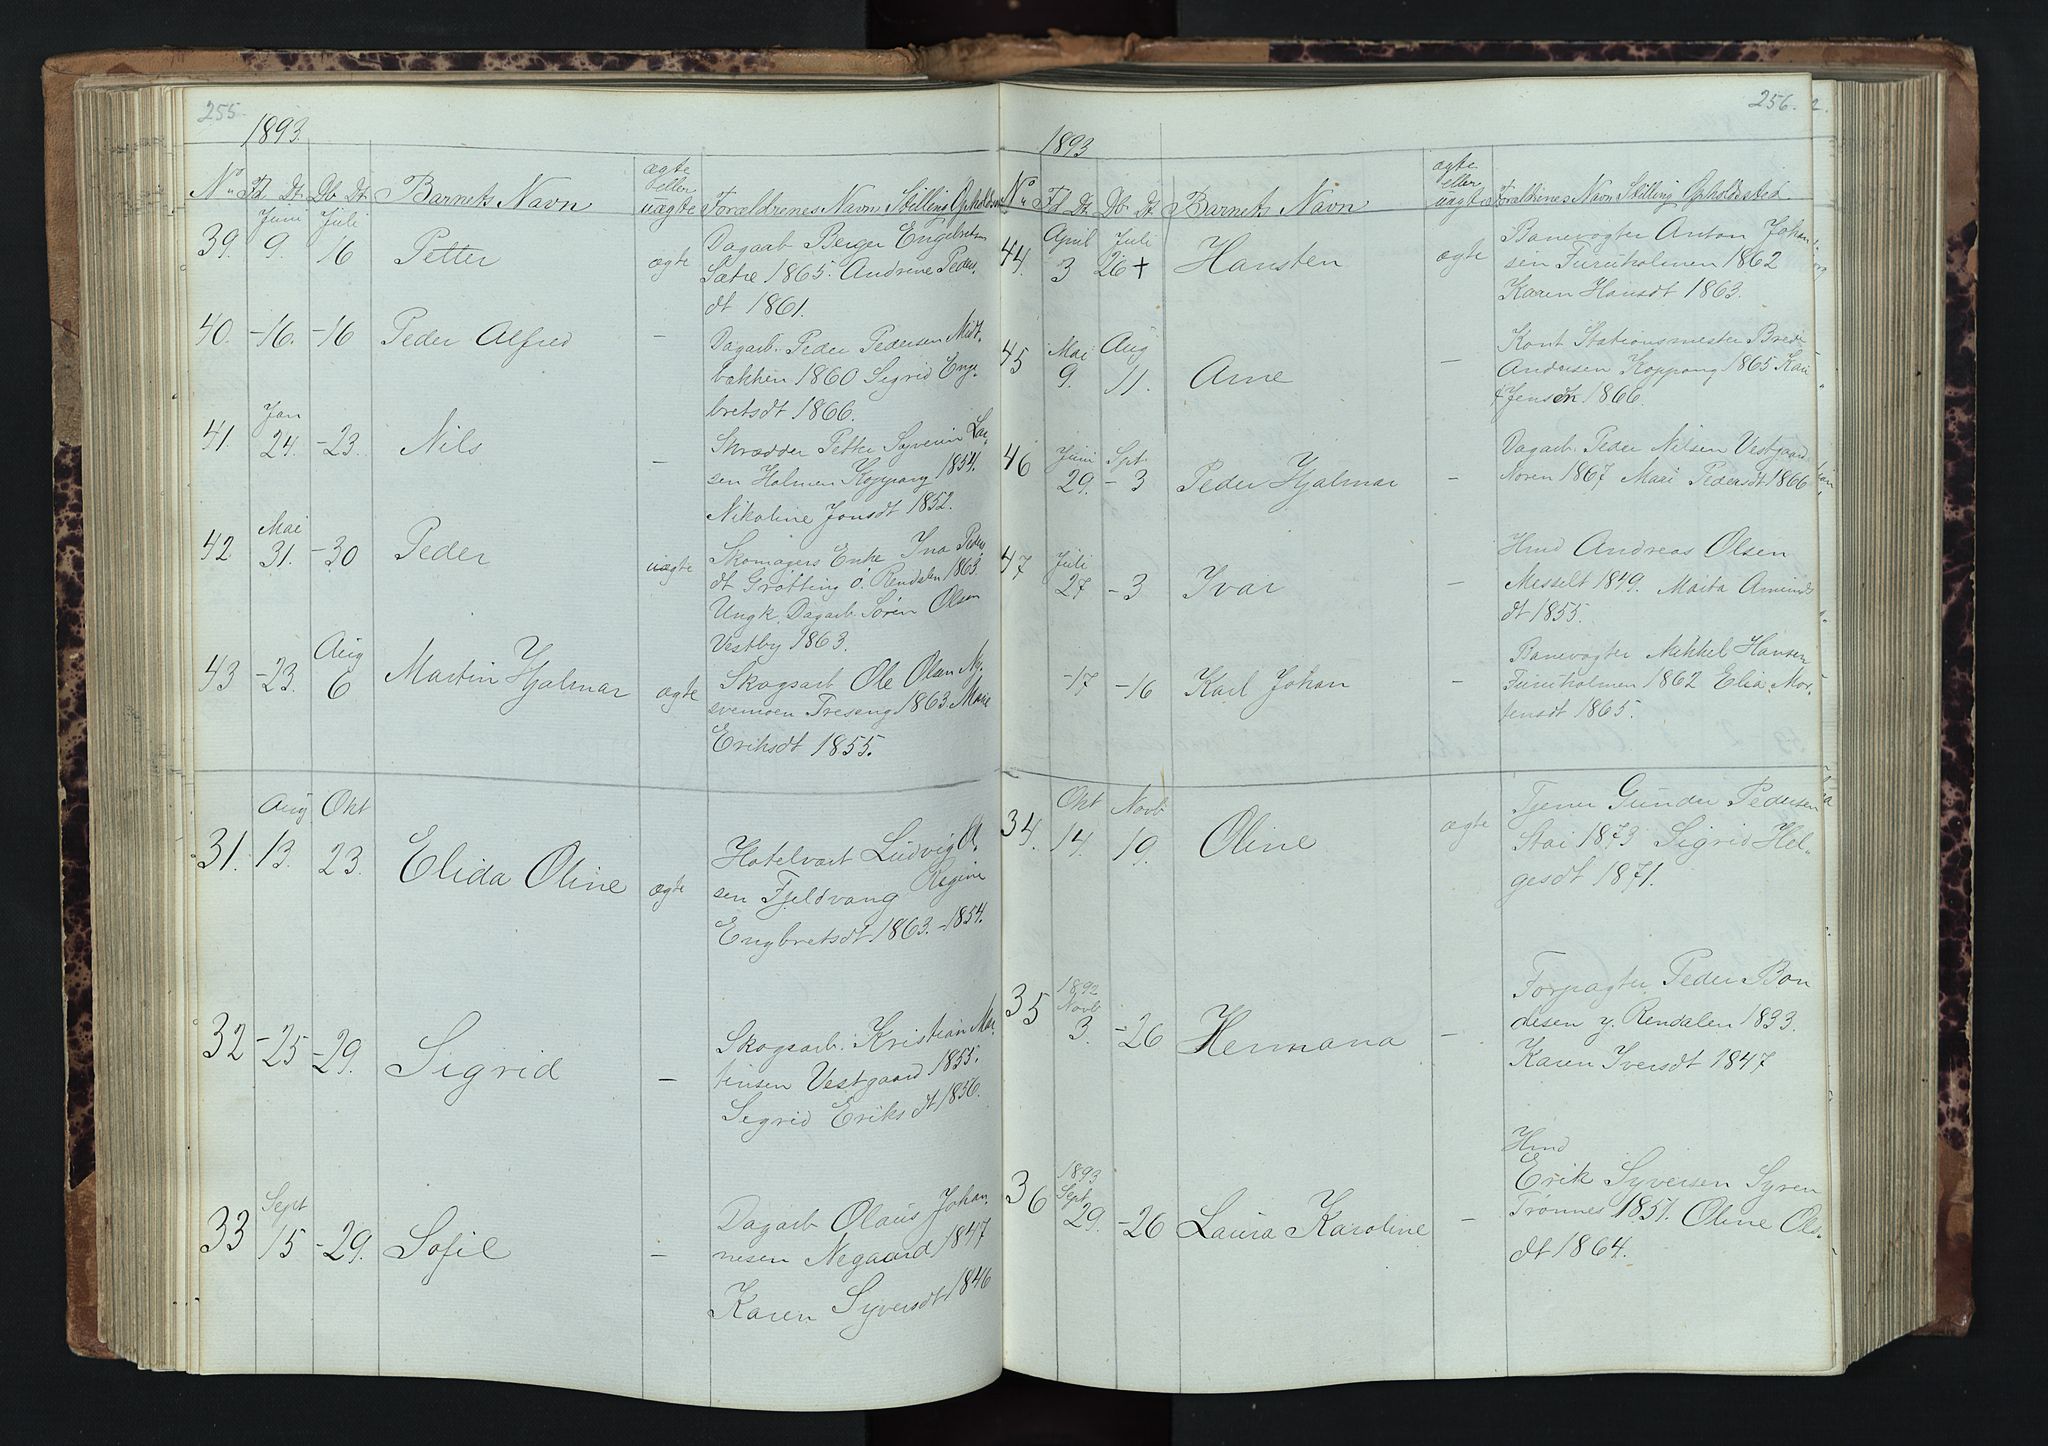 255.
1893.
No Fd Dt. Db Dt. Barnets Navn ægte eller uægte Forældrenes Navn Stilling Opholdsst
39. Juni 9. Juli 16 Petter ægte Dagarb Berger Engebretsen
Sætre 1865. Andrine Peders-
dt 1861.
40. -16. -16 Peder Alfred - Dagarb. Peder Pedersen Midt-
bækken 1860 Sigrid Enge-
bretsdt 1866.
41 Jan 24. -23. Nils - Skrædder Petter Syverin Lar-
sen Holmen Koppang 1854.
Nikoline Jonsdt 1852.
42 Mai 31. -30 Peder uægte Skomagers Enke Ina Peders
dt Grøtting ø. Rendalen 1863.
Ungk. Dagarb. Søren Olsen
Vestby 1863.
43 -23. Aug 6 Martin Hjalmar ægte Skogsarb Ole Olsen Ny-
svemoen Treseng 1863. Marie
Eriksdt 1855.
31. Aug 13. Okt 23. Elida Oline ægte Hotelvært Ludvig Ol-
sen Fjeldvang Regine
Engbretsdt 1863. -1854.
32 -25 -29. Sigrid - Skogsarb. Kristian Mar-
tinsen Vestgaard 1855.
Sigrid Eriksdt 1856.
33 Sept 15 -29. Sofie - Dagarb Olaus Johan-
nesen Negaard 1847
Karen Syversdt 1846
256.
1893
No Fd Dt. Db Dt. Barnets Navn ægte eller uægte Forældrenes Navn Stilling Opholdssted.
44. April 3 Juli 26 + Hansten ægte Banevogter Anton Johan-
sen Furuholmen 1862
Karen Hansdt 1863.
45 Mai 9. Aug 11. Arne - Kont Stationsmester Brede
Andersen Koppang 1865 Kari
Jensen 1866.
46 Juni 29. Spt -3 Peder Hjalmar - Dagarb. Peder Nilsen Vestgaard
Noren 1867 Mari Pedersdt 1866
47 Juli 27 -3 Ivar - Hmd Andreas Olsen
Messelt 1849. Marta Amunds
dt 1855.
-17 -16 Karl Johan - Banevogter Mekkel Hansen
Furuholmen 1862 Elia Mor-
tensdt 1865.
34. Okt 14. Novb 19. Oline ægte Tjener Gunder Pedersen
Stai 1873 Sigrid Hel-
gesdt 1871.
35 1892 Novb 3. -26 Hermana - Forpagter Peder Bon
desen y. Rendalen 1833.
Karen Iversdt 1847
36 1893 Sept 29. -26 Laura Karoline - Hmd
Erik Syversen Syren
Trønnes 1857. Oline Ols-
dt 1864.